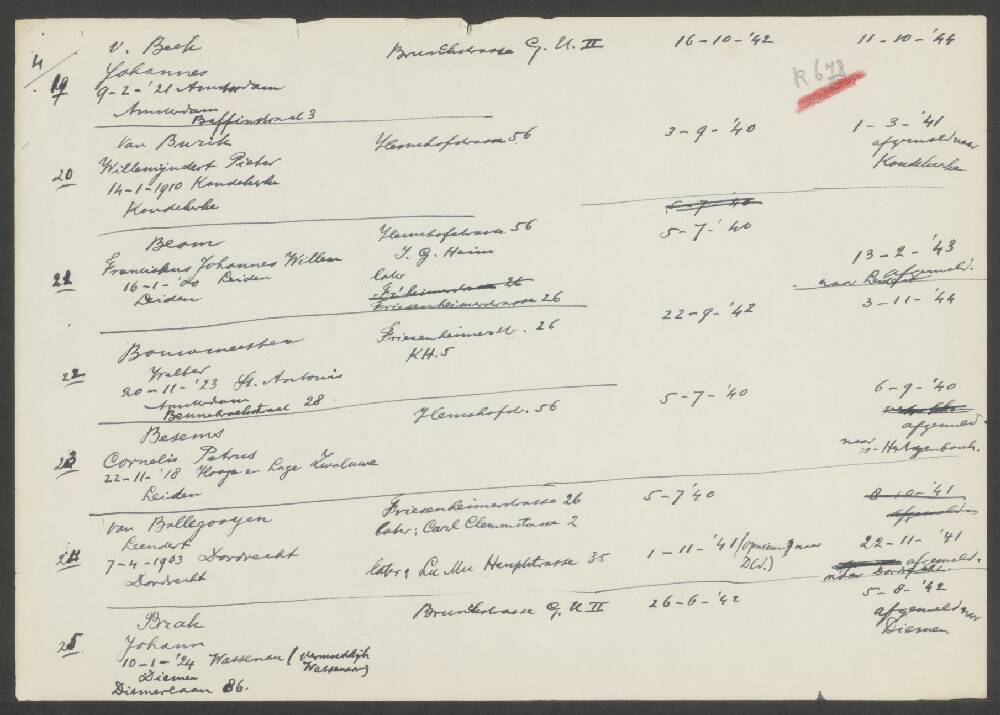 4
19
v. Beek Brunckstrasse G. U. II 16-10-'42 11-10-'44
Johannes
R 678
9-2-'21 Amsterdam
Amsterdam
Baffinstraat 3
Van Burik Hemshofstrasse 56 3-9-'40 1-3-'41
afgemeld naar
20 Willemijndert Pieter Koudekerke
14-1-1910 Koudekerke
Koudekerke
5-7-'40
Beom Hemshofstrasse 56 5-7-'40
21 Franciskus Johannes Willem I. G. Heim 13-2-'43
16-1-'00 Leiden later afgemeld.
Leiden naar Leiden
Friesenheimerstrasse 26
22-9-'42 3-11-'44
Bouwmeester Friesenheimerstr. 26
22 Walter KH.5
20-11-'23 St. Antonis
Amsterdam
Bennebroekstraat 28
5-7-'40 6-9-'40
Besems Hemshofstr. 56 afgemeld.
23 Cornelis Petrus naar
22-11-'18 Hooge en Lage Zwaluwe s-Hertogenbosch.
Leiden
van Ballegooyen Friesenheimerstrasse 26 5-7'40 8-10-'41
Leendert later: Carl Clemmstrasse 2 afgemeld
24 7-4-1903 Dordrecht later: Lu Mu Hauptstrasse 35 1-11-'41 (opnieuw naar D(d.) 22-11-'41
Dordrecht afgemeld.
naar Dordrecht.
Brak Brunckstrasse G. U II 26-6-'42 5-8-'42
25 Johann afgemeld naar
10-1-'24 Wassenau (vermoedelijk Diemen
Diemen Wassenaar)
Diemerlaan 86.